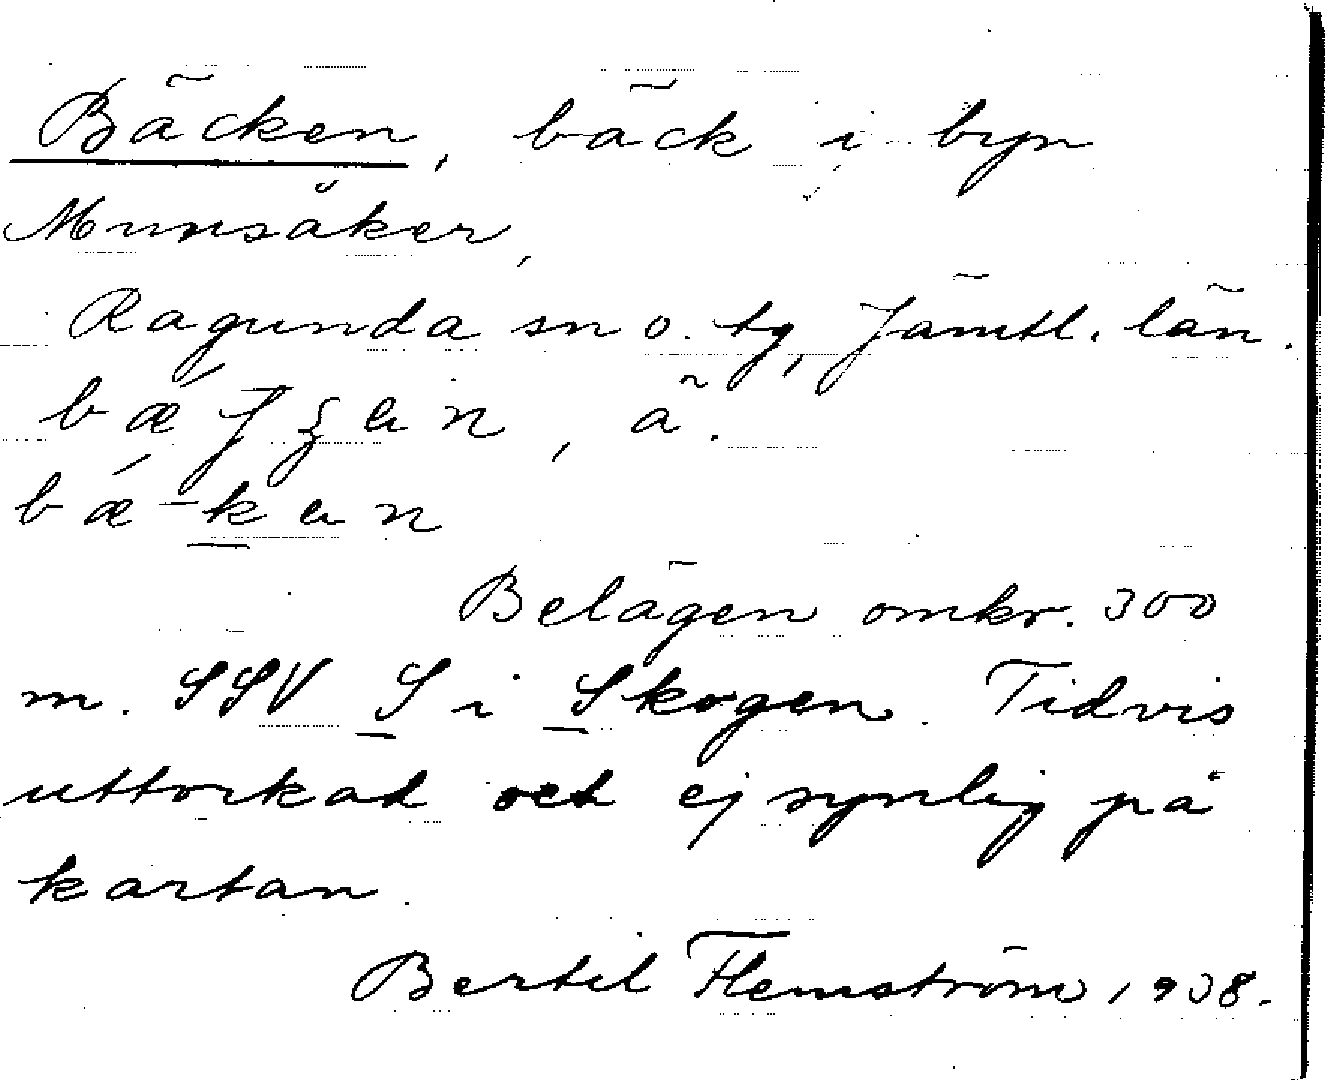 Bäcken, bäck i byn
Munsåker,
Ragunda sn o. tg, Jämtl. län.
ä.
Belägen omkr. 300
m. SSV S i Skogen. Tidvis
uttorkad och ej synlig på
kartan.
Bertil Flemström 1938.